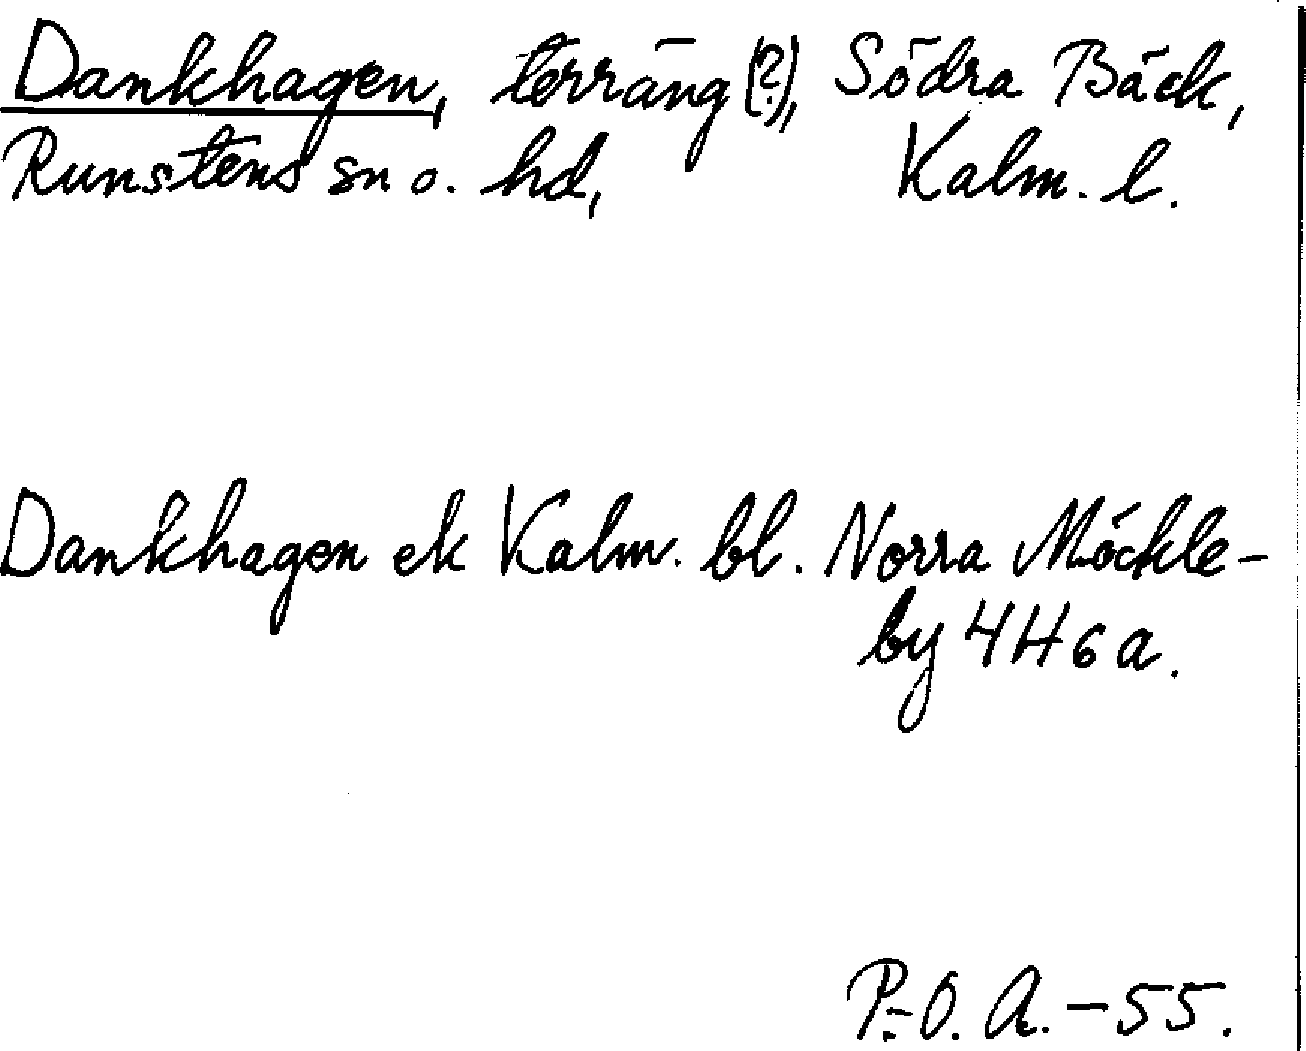 Dankhagen, terräng (?), Södra Bäck,
Runstens sn o. hd, Kalm. l.
Dankhagen ek Kalm. bl. Norra Möckle-
by 4H6a.
P.-O. A. - 55.